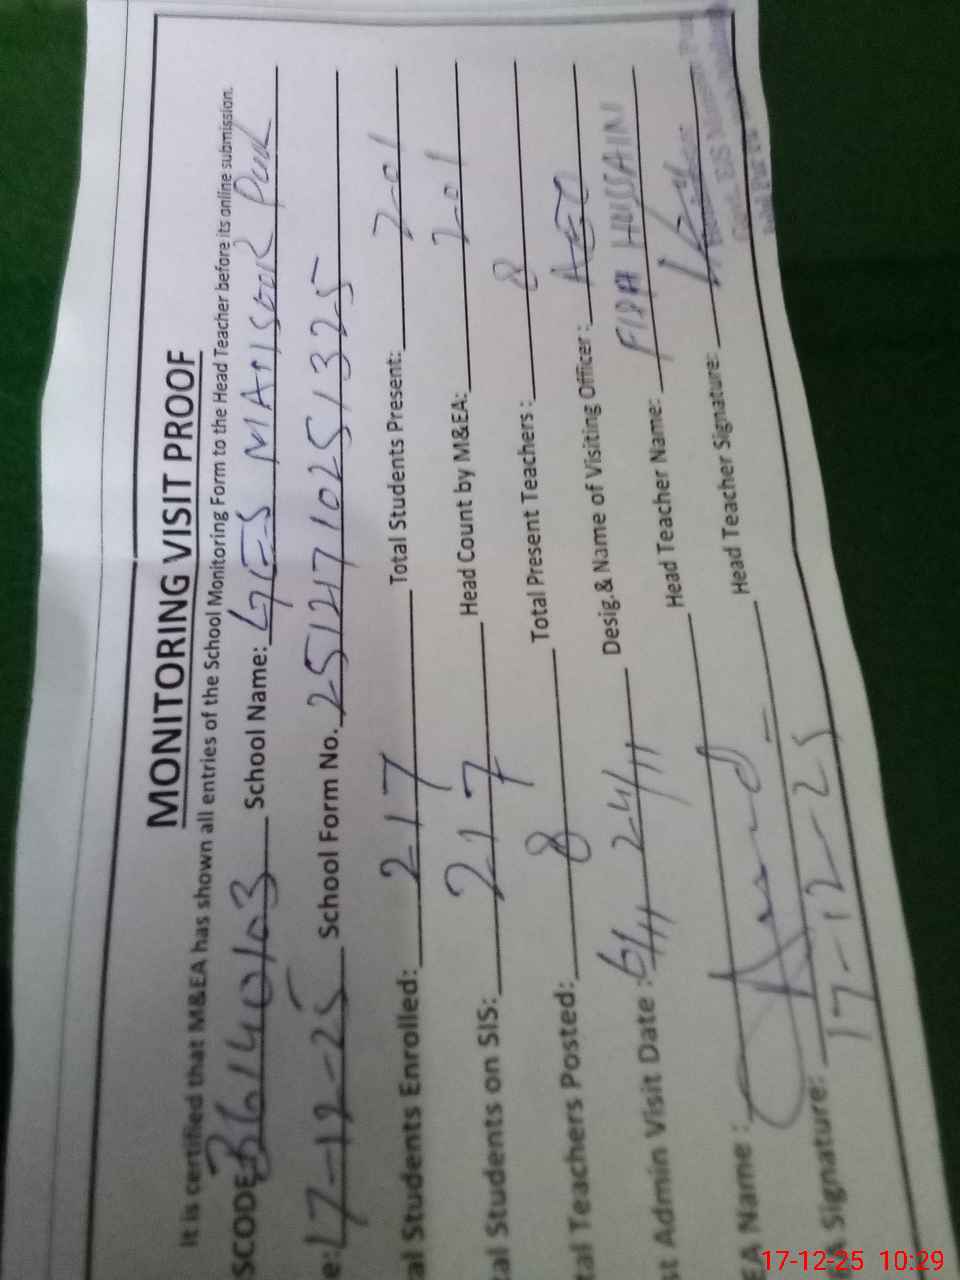 MONITORING VISIT PROOF
It is certified that M&EA has shown all entries of the School Monitoring Form to the Head Teacher before its online submission.
SCODE 36140103 School Name: GES MANSOOR Pur
e: 17-12-25 School Form No. 25121710251325
al Students Enrolled: 217 Total Students Present: 201
al Students on SIS: 217 Head Count by M&EA: 201
tal Teachers Posted: 8 Total Present Teachers: 8
st Admin Visit Date: Desig.& Name of Visiting Officer: AEO
EA Name: Head Teacher Name: FIDA HUSSAIN
A Signature: 17-12-25 Head Teacher Signature:
17-12-25 10:29